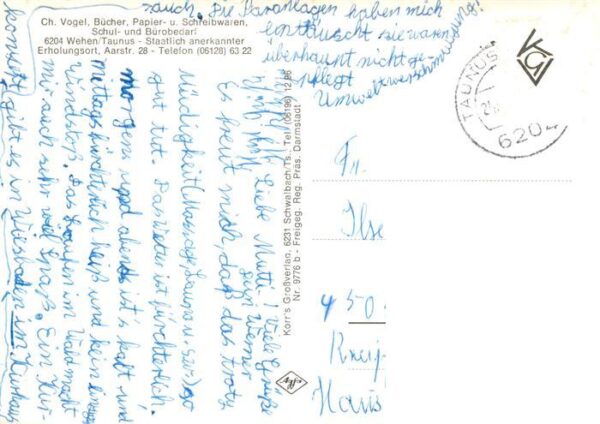 Ch. Vogel, Bücher, Papier- u. Schreibwaren,
Schul- und Bürobedarf
6204 Wehen/Taunus - Staatlich anerkannter
Erholungsort, Aarstr. 28 - Telefon (06128) 63 22
Liebe Mutti!
Es freut mich, daß das trotz
Müdigkeit (Massage Sauna u. so) so
gut tut. Das Wetter ist fürchterlich.
morgens und abends ist's kalt und
mittags fürchterlich heiß und kein einziger
Windstoß. Das Laufen im Wald macht
mir auch sehr viel Spaß. Ein Kur-
konzert gibt es in Wiesbaden im Kurhaus
auch. Die Paranlagen haben mich
enttäuscht sie waren
überhaupt nicht ge-
pflegt
Umweltverschmutzung!
Viele Grüße
Dein Werner
Korr's Großverlag, 6231 Schwalbach/Ts., Tel. (06196) 12 86
Nr. 9776 b - Freigeg. Reg. Präs. Darmstadt
Agfa
TAUNUS
620
Fr.
Ilse
450
Haus